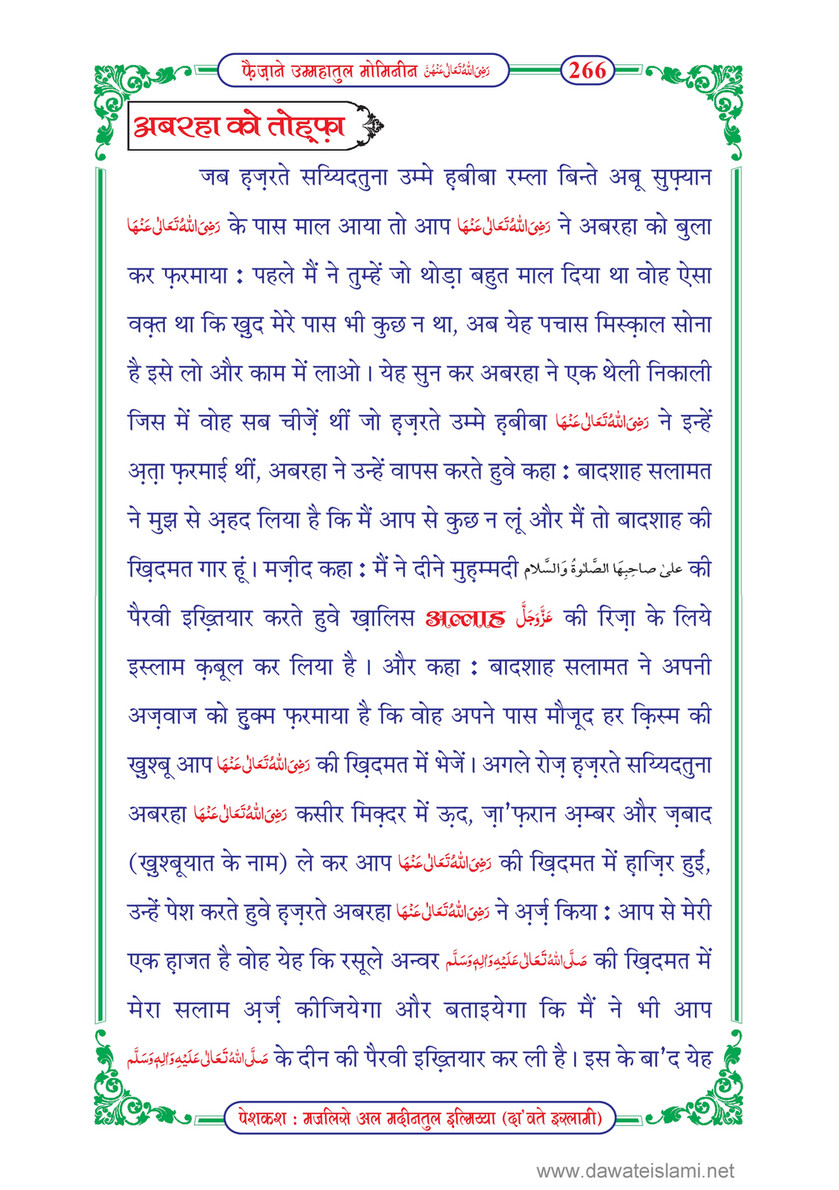 फ़ैज़ाने उम्महातुल मोमिनीन رَضِیَ اللہُ تَعَالٰی عَنْہُنَّ 266
अबरहा को तोह़्फ़ा
जब ह़ज़रते सय्यिदतुना उम्मे ह़बीबा रम्ला बिन्ते अबू सुफ़्यान
رَضِیَ اللہُ تَعَالٰی عَنْہَا के पास माल आया तो आप رَضِیَ اللہُ تَعَالٰی عَنْہَا ने अबरहा को बुला
कर फ़रमाया : पहले मैं ने तुम्हें जो थोड़ा बहुत माल दिया था वोह ऐसा
वक़्त था कि ख़ुद मेरे पास भी कुछ न था, अब येह पचास मिस्क़ाल सोना
है इसे लो और काम में लाओ । येह सुन कर अबरहा ने एक थेली निकाली
जिस में वोह सब चीज़ें थीं जो ह़ज़रते उम्मे ह़बीबा رَضِیَ اللہُ تَعَالٰی عَنْہَا ने इन्हें
अ़त़ा फ़रमाई थीं, अबरहा ने उन्हें वापस करते हुवे कहा : बादशाह सलामत
ने मुझ से अ़हद लिया है कि मैं आप से कुछ न लूं और मैं तो बादशाह की
ख़िदमत गार हूं । मज़ीद कहा : मैं ने दीने मुह़म्मदी علیٰ صاحِبِہَا الصَّلٰوۃُ وَالسَّلَام की
पैरवी इख़्तियार करते हुवे ख़ालिस अल्लाह عَزَّوَجَلَّ की रिज़ा के लिये
इस्लाम क़बूल कर लिया है । और कहा : बादशाह सलामत ने अपनी
अज़वाज को हुक्म फ़रमाया है कि वोह अपने पास मौजूद हर क़िस्म की
ख़ुश्बू आप رَضِیَ اللہُ تَعَالٰی عَنْہَا की ख़िदमत में भेजें । अगले रोज़ ह़ज़रते सय्यिदतुना
अबरहा رَضِیَ اللہُ تَعَالٰی عَنْہَا कसीर मिक़्दर में ऊ़द, ज़ा'फ़रान अ़म्बर और ज़बाद
(ख़ुश्बूयात के नाम) ले कर आप رَضِیَ اللہُ تَعَالٰی عَنْہَا की ख़िदमत में ह़ाज़िर हुईं,
उन्हें पेश करते हुवे ह़ज़रते अबरहा رَضِیَ اللہُ تَعَالٰی عَنْہَا ने अ़र्ज़ किया : आप से मेरी
एक ह़ाजत है वोह येह कि रसूले अन्वर صَلَّی اللہُ تَعَالٰی عَلَیْہِ وَاٰلِہٖ وَسَلَّم की ख़िदमत में
मेरा सलाम अ़र्ज़ कीजियेगा और बताइयेगा कि मैं ने भी आप
صَلَّی اللہُ تَعَالٰی عَلَیْہِ وَاٰلِہٖ وَسَلَّم के दीन की पैरवी इख़्तियार कर ली है । इस के बा'द येह
पेशकश : मजलिसे अल मदीनतुल इल्मिय्या (दा'वते इस्लामी)
www.dawateislami.net